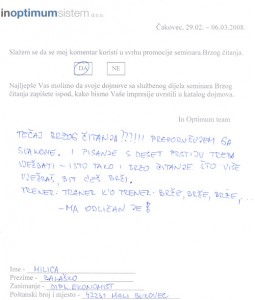 inoptimumsistem d.o.o.
Čakovec, 29.02. – 06.03.2008.
Slažem se da se moj komentar koristi u svrhu promocije seminara Brzog čitanja.
DA NE
Najljepše Vas molimo da svoje dojmove sa službenog dijela seminara Brzog
čitanja zapišete ispod, kako bismo Vaše impresije uvrstili u katalog dojmova.
In Optimum team
TEČAJ BRZOG ČITANJA?!!!!! PREPORUČUJEM GA
SVAKOME. I PISANJE S DESET PRSTIJU TREBA
VJEŽBATI - ISTO TAKO I BRZO ČITANJE. ŠTO VIŠE
VJEŽBAŠ, BIT ĆEŠ BRŽI.
TRENER: TRENER K'O TRENER: BRŽE, BRŽE, BRŽE, ...
- MA ODLIČAN JE!
Ime - MILICA
Prezime - BALAŠKO
Zanimanje - DIPL. EKONOMIST
Poštanski broj i mjesto - 42231 MALI BUKOVEC